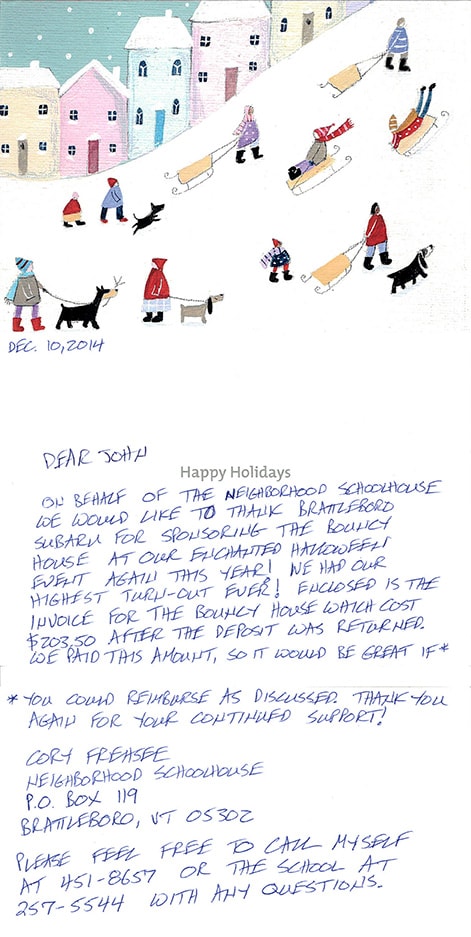 DEC. 10, 2014
DEAR JOHN
Happy Holidays
ON BEHALF OF THE NEIGHBORHOOD SCHOOLHOUSE
WE WOULD LIKE TO THANK BRATTLEBORO
SUBARU FOR SPONSORING THE BOUNCY
HOUSE AT OUR ENCHANTED HALLOWEEN
EVENT AGAIN THIS YEAR! WE HAD OUR
HIGHEST TURN-OUT EVER! ENCLOSED IS THE
INVOICE FOR THE BOUNCY HOUSE WHICH COST
$203.50 AFTER THE DEPOSIT WAS RETURNED.
WE PAID THIS AMOUNT, SO IT WOULD BE GREAT IF *
* YOU COULD REIMBURSE AS DISCUSSED. THANK YOU
AGAIN FOR YOUR CONTINUED SUPPORT!
CORY FREHSEE
NEIGHBORHOOD SCHOOLHOUSE
P.O. BOX 119
BRATTLEBORO, VT 05302
PLEASE FEEL FREE TO CALL MYSELF
AT 451-8657 OR THE SCHOOL AT
257-5544 WITH ANY QUESTIONS.